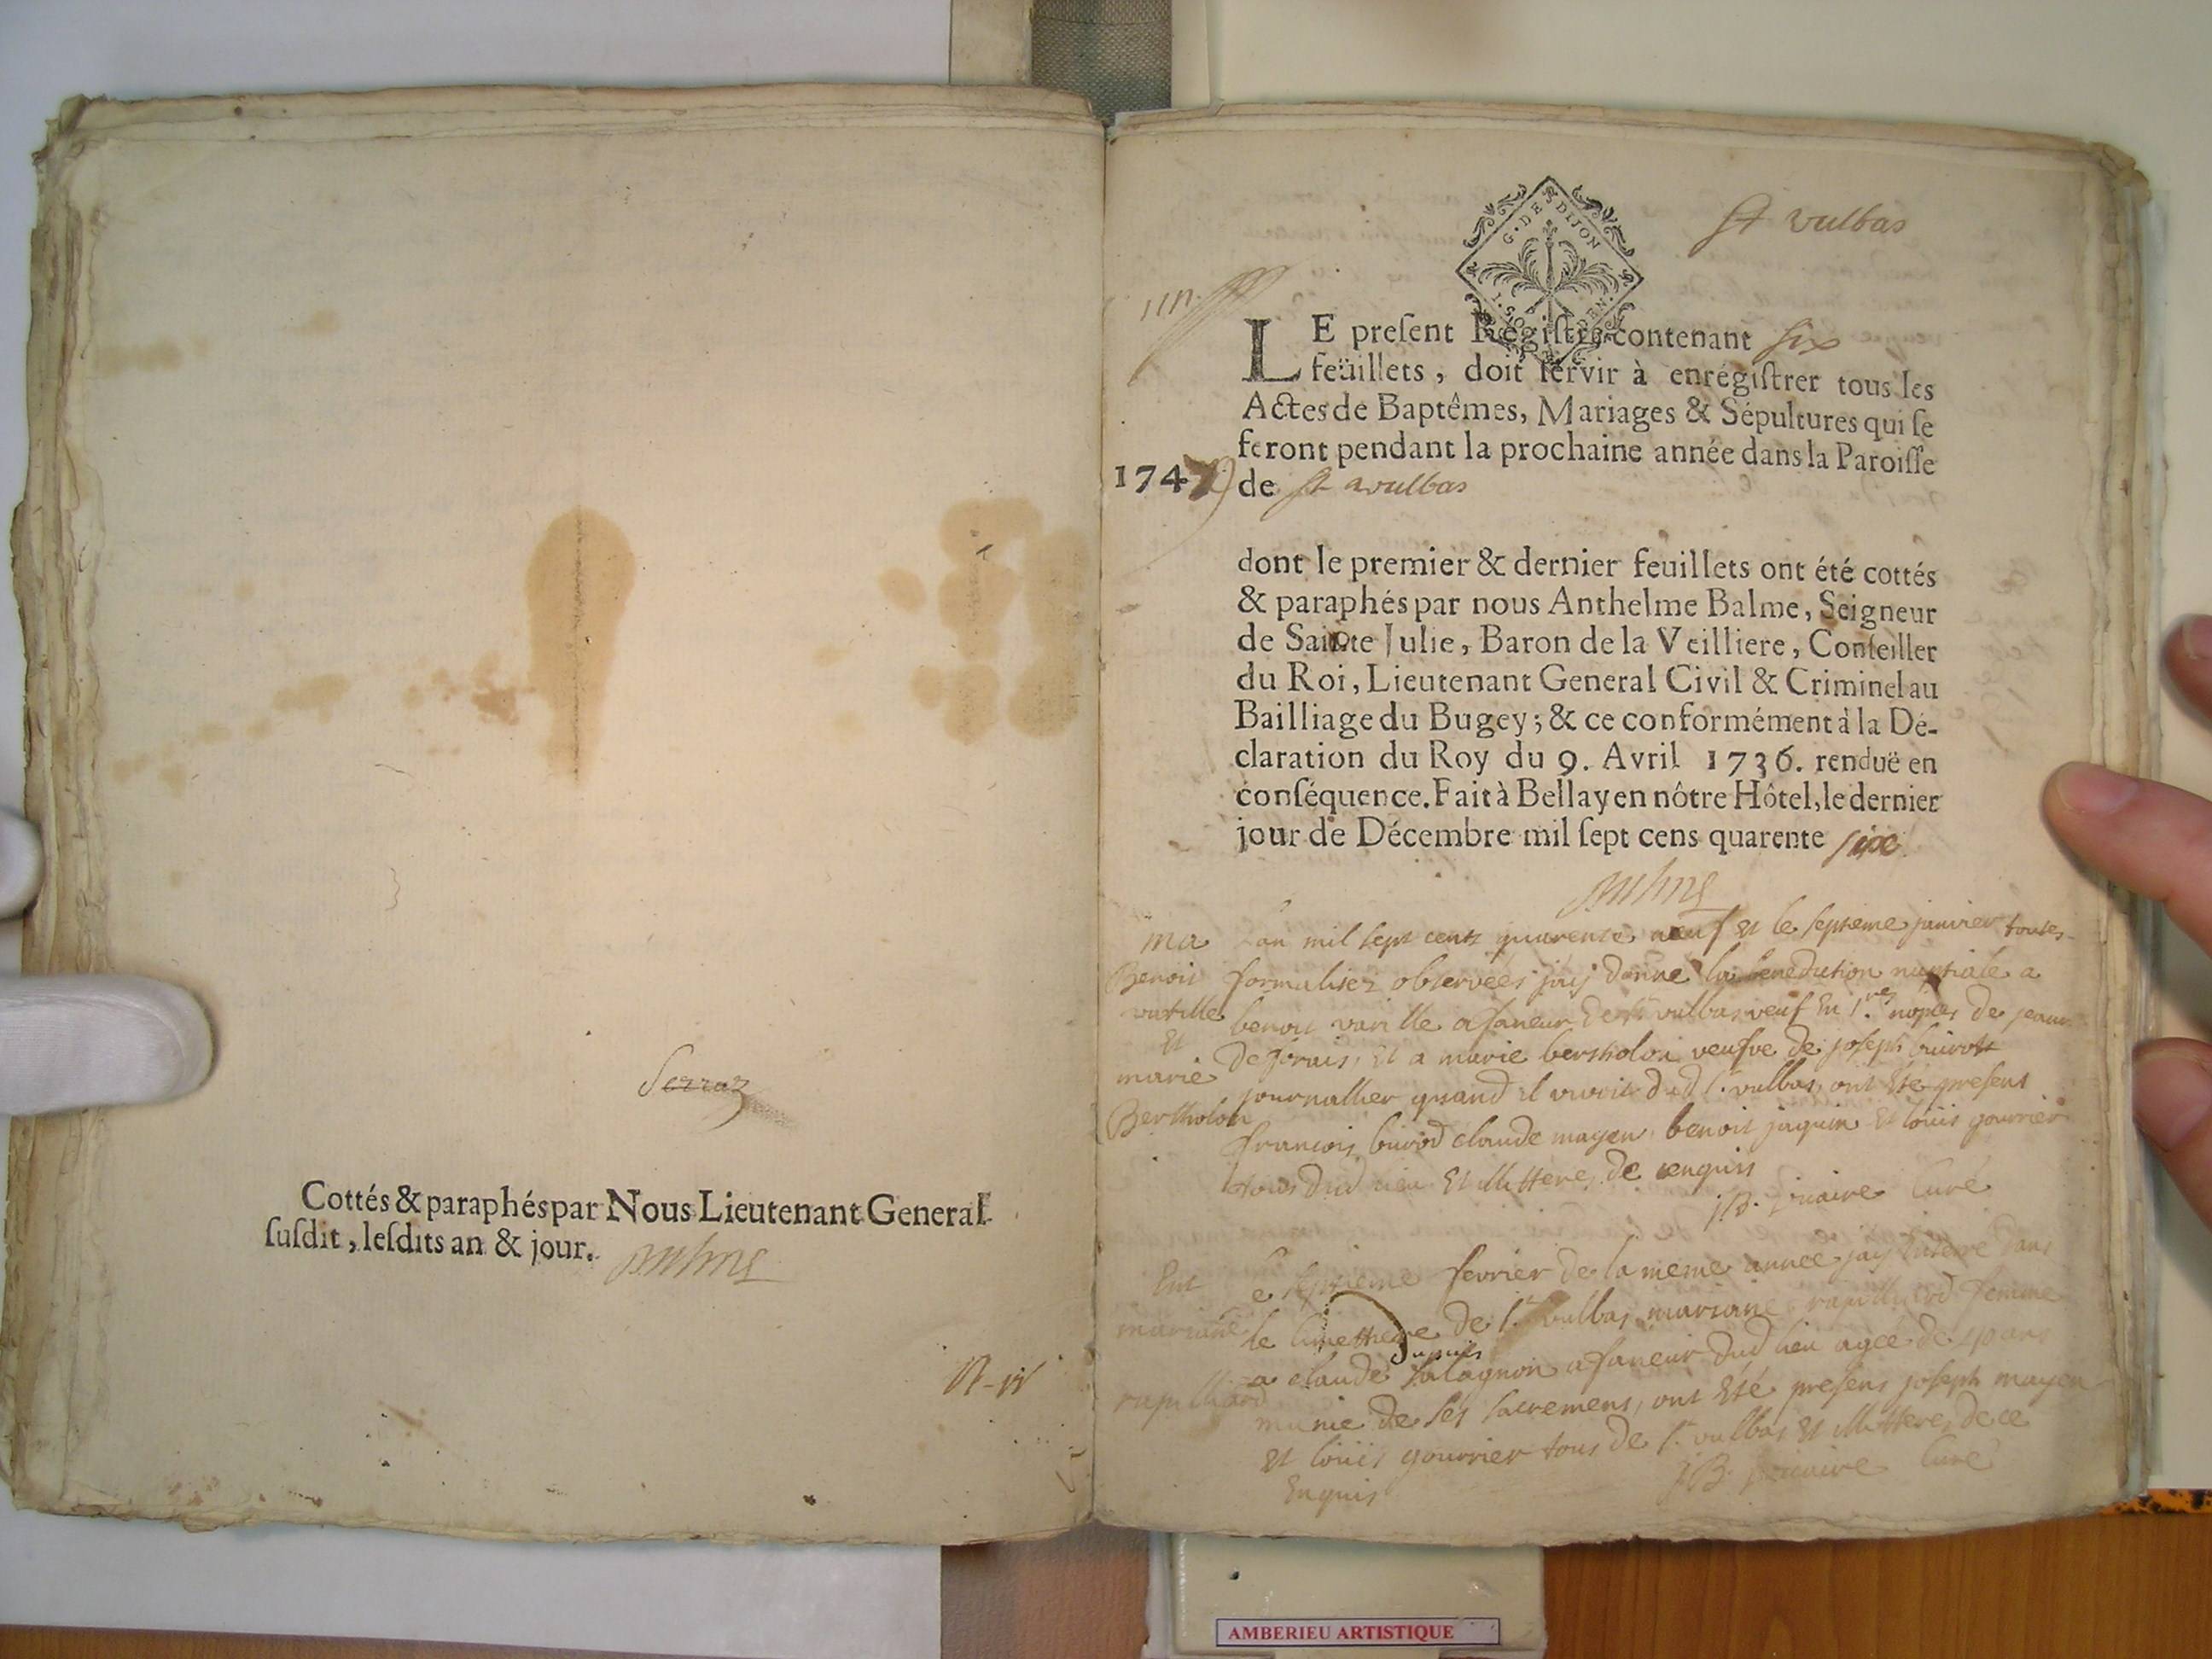 Serraz
Cottés & paraphés par Nous Lieutenant General
susdit, lesdits an & jour.
St vulbas
G. DE DIJON
LE present Régistre contenant six
feüillets, doit servir à enrégistrer tous les
Actes de Baptêmes, Mariages & Sépultures qui se
feront pendant la prochaine année dans la Paroisse
174
de St vulbas
dont le premier & dernier feuillets ont été cottés
& paraphés par nous Anthelme Balme, Seigneur
de Sainte Julie, Baron de la Veilliere, Conseiller
du Roi, Lieutenant General Civil & Criminel au
Bailliage du Bugey; & ce conformément à la Dé-
claration du Roy du 9. Avril 1736. renduë en
conséquence. Fait à Bellay en nôtre Hôtel, le dernier
jour de Décembre mil sept cens quarente six
ma
Benoit
varille
Et
marie
Bertholon
Lan mil sept cents quarente neuf et le septieme janvier toutes
formalisez observées jaij donné la benediction nuptiale a
benoit varille afaneur de St vulbas veuf En 1.res nopces de jeanne
et a marie bersholon veufve de joseph buirot
journallier quand il vivoit dud St. vulbas, ont Eté presens
francois buirod claude mayen, benoit jaquin Et loüis gourrier
tous dud lieu Et illitteres de enquis
J.B. Curé
Ent
mariane
rapilliard
Le septieme fevrier de la meme année jay Enterré dans
le Cimettiere de St. vulbas mariane femme
a claude salagnon afaneur dud lieu agée de ans
munie de ses sacremens, ont Eté presens joseph mayen
et loüis gourrier tous de St. vulbas Et illitteres de ce
Enquis
J.B. Curé
AMBERIEU ARTISTIQUE